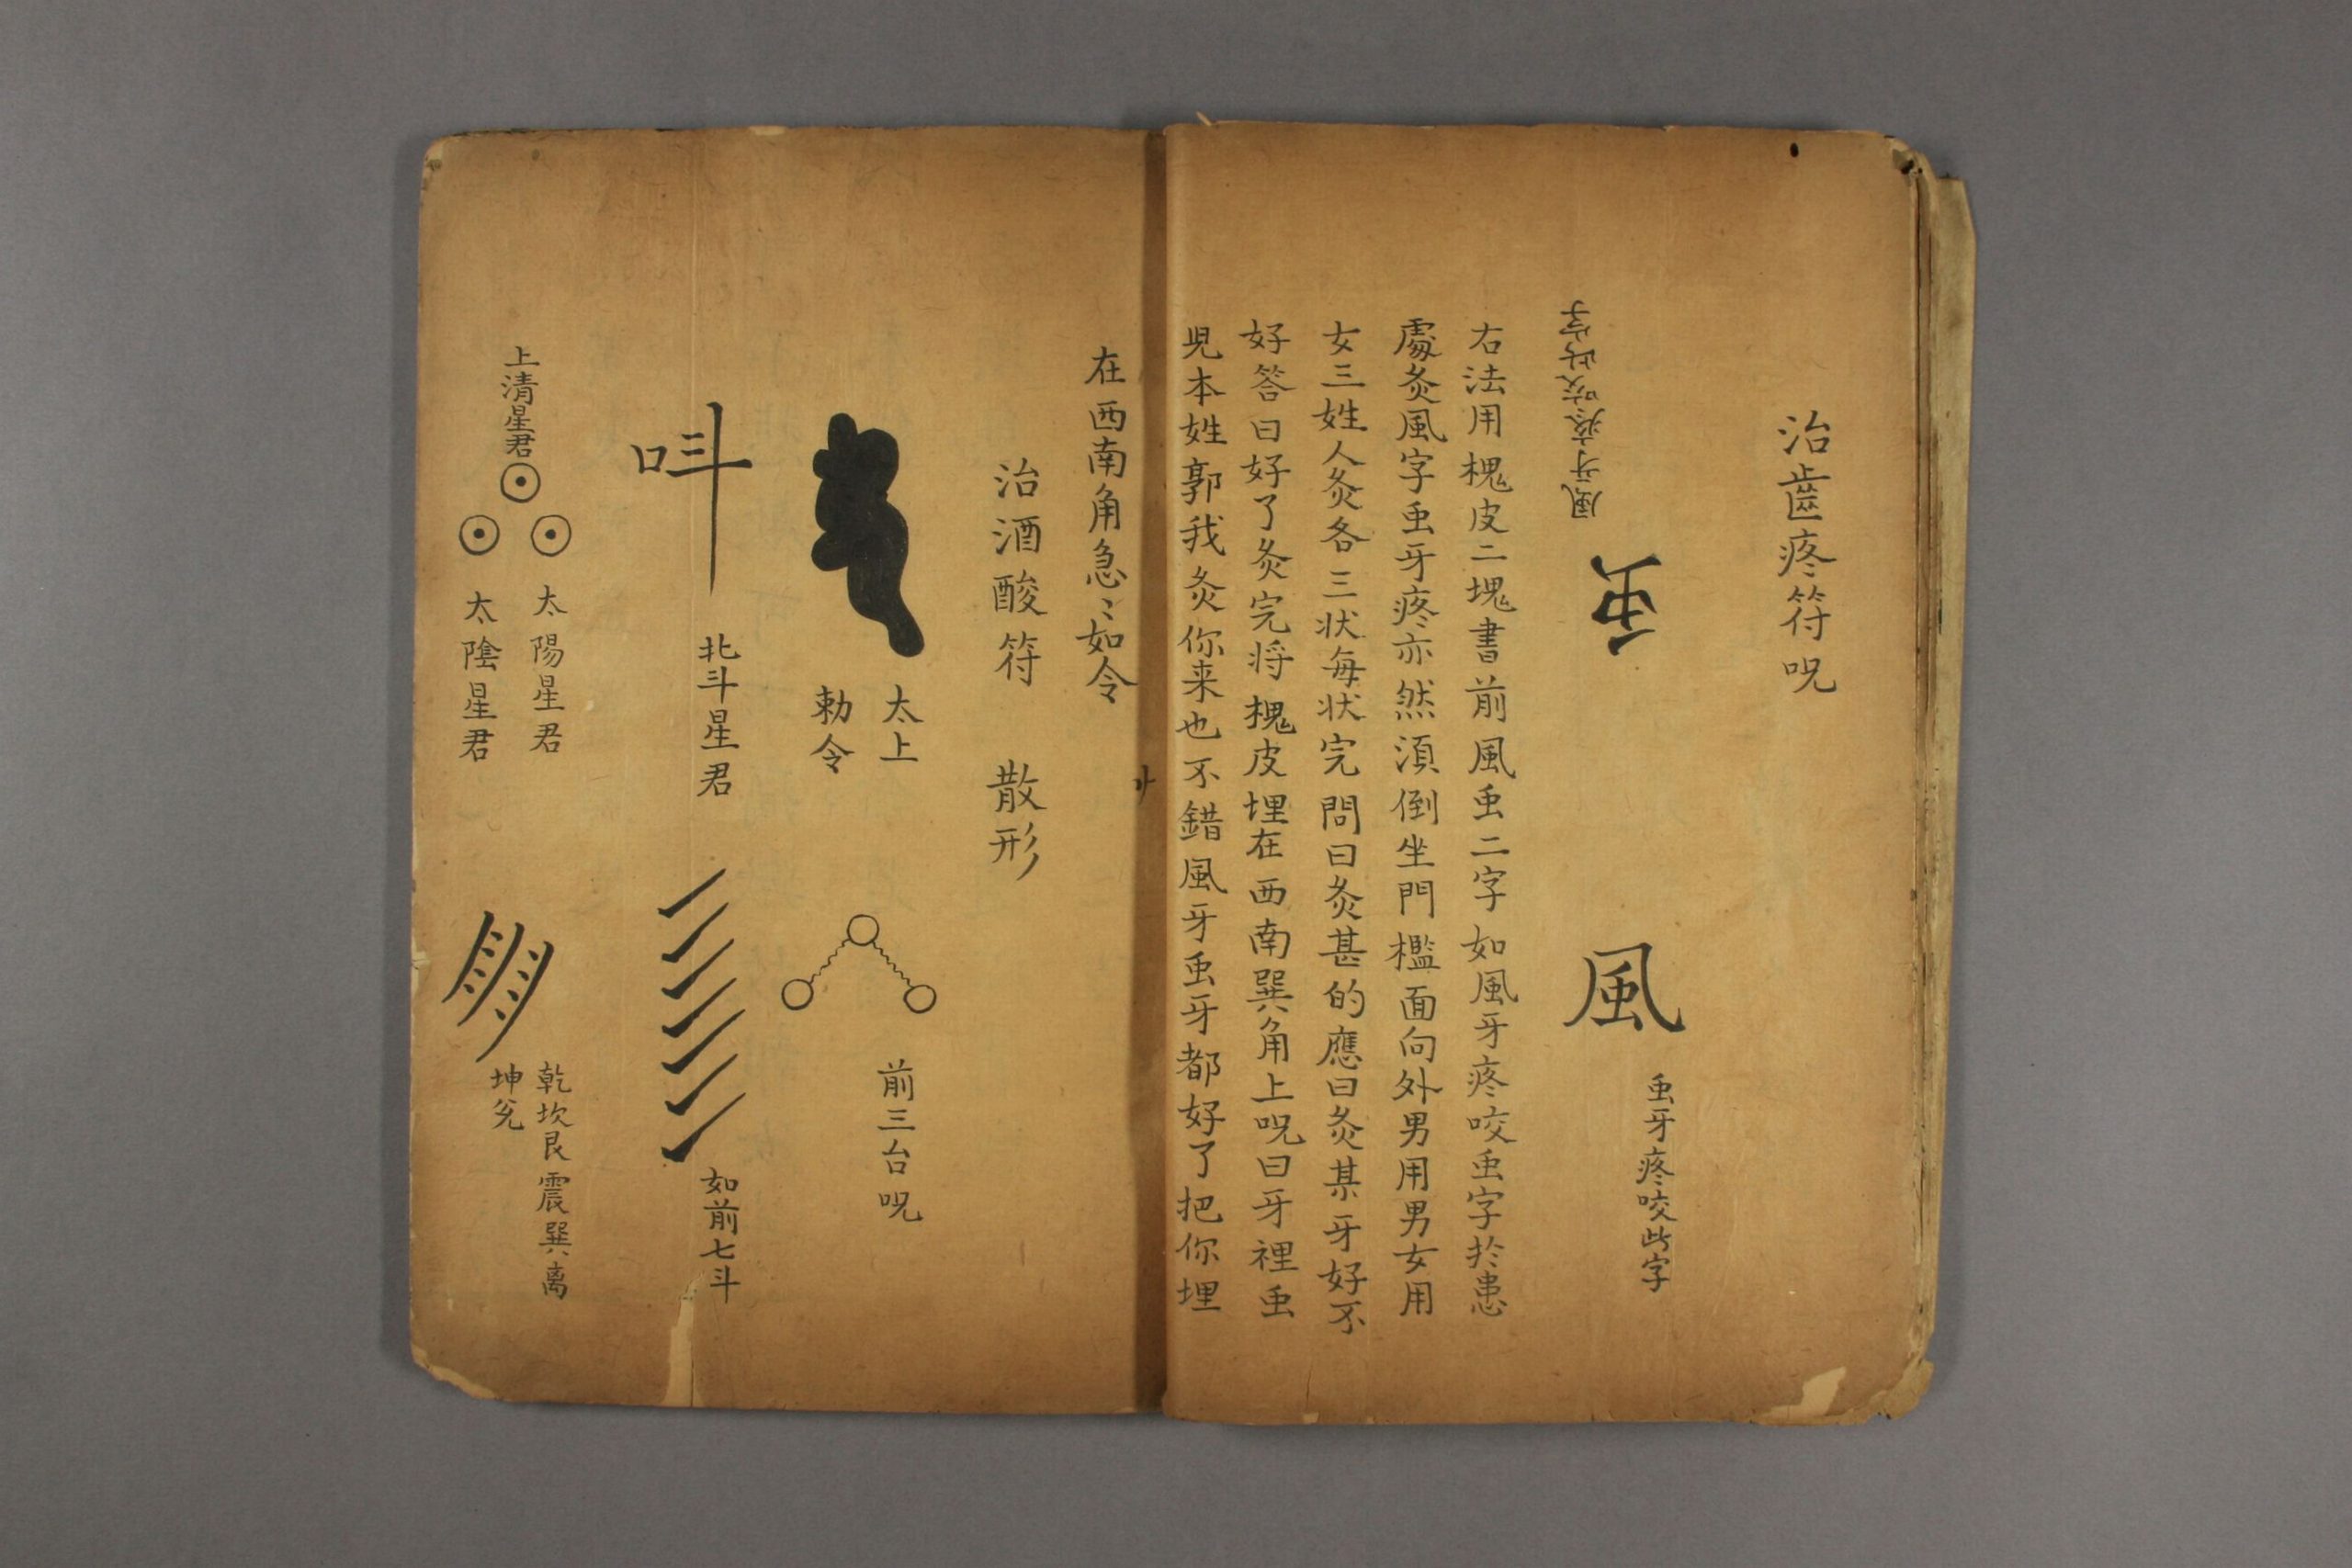 治齒疼符呪
風
虫牙疼咬此字
䖝
風牙疼咬此字
右法用槐皮二塊書前風虫二字如風牙疼咬虫字扵患
處灸風字虫牙疼亦然湏倒坐門檻面向外男用男女用
女三姓人灸各三状每状完問曰灸甚的應曰灸某牙好不
好答曰好了灸完将槐皮埋在西南巽角上呪曰牙裡虫
児本姓郭我灸你来也不錯風牙虫牙都好了把你埋
在西南角急〻如令
治酒酸符 散形
太上
勅令
前三台呪
呌
北斗星君
如前七斗
上清星君
太陽星君
太陰星君
乾坎艮震巽离
坤兌